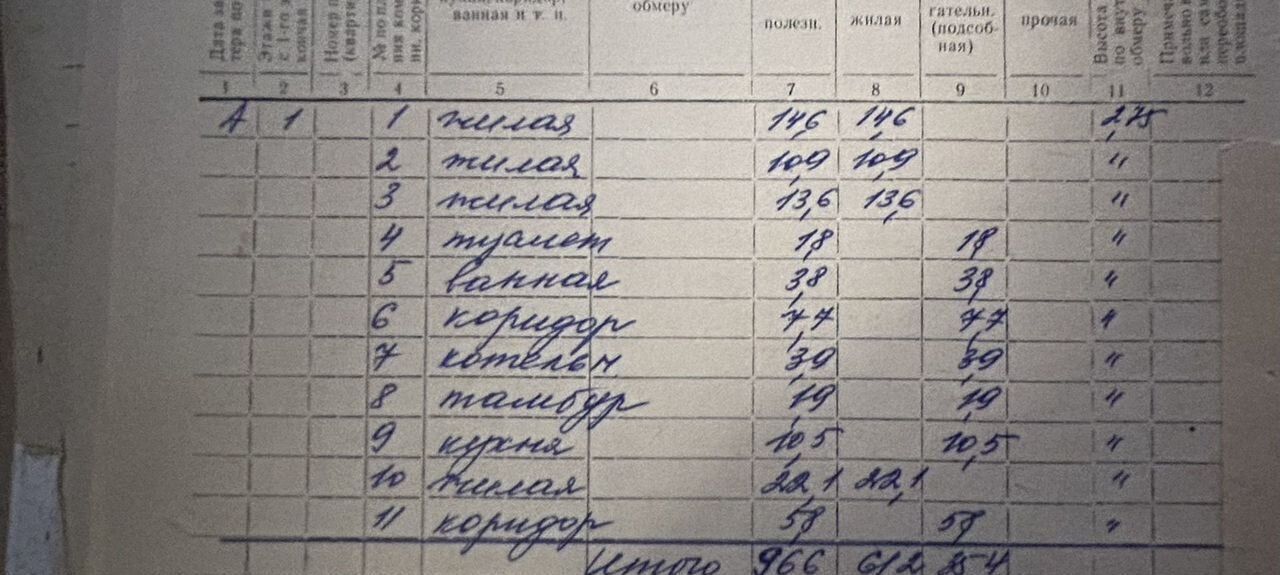 обмеру полезн. жилая гательн. (подсобная) прочая
ванная и т. п.
1 2 3 4 5 6 7 8 9 10 11 12
А 1 1 жилая 14,6 14,6 2,75
2 жилая 10,9 10,9 "
3 жилая 13,6 13,6 "
4 туалет 1,8 1,8 "
5 ванная 3,8 3,8 "
6 коридор 7,7 7,7 "
7 котельн. 3,9 3,9 "
8 тамбур 1,9 1,9 "
9 кухня 10,5 10,5 "
10 жилая 22,1 22,1 "
11 коридор 5,8 5,8 "
Итого 96,6 61,2 35,4